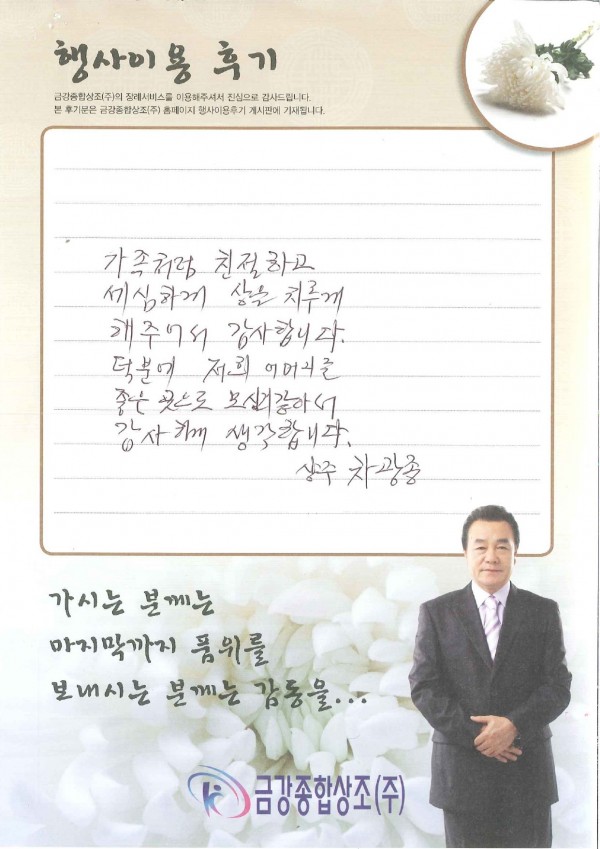 행사이용 후기
금강종합상조(주)의 장례서비스를 이용해주셔서 진심으로 감사드립니다.
본 후기분은 금강종합상조(주) 홈페이지 행사이용후기 게시판에 기재됩니다.
가족처럼 친절하고
세심하게 상을 치루게
해주어서 감사합니다.
덕분에 저희 어머니를
좋은 곳으로
감사하게 생각합니다.
상주 차광종
가시는 분께는
마지막까지 품위를
보내시는 분께는 감동을...
금강종합상조(주)